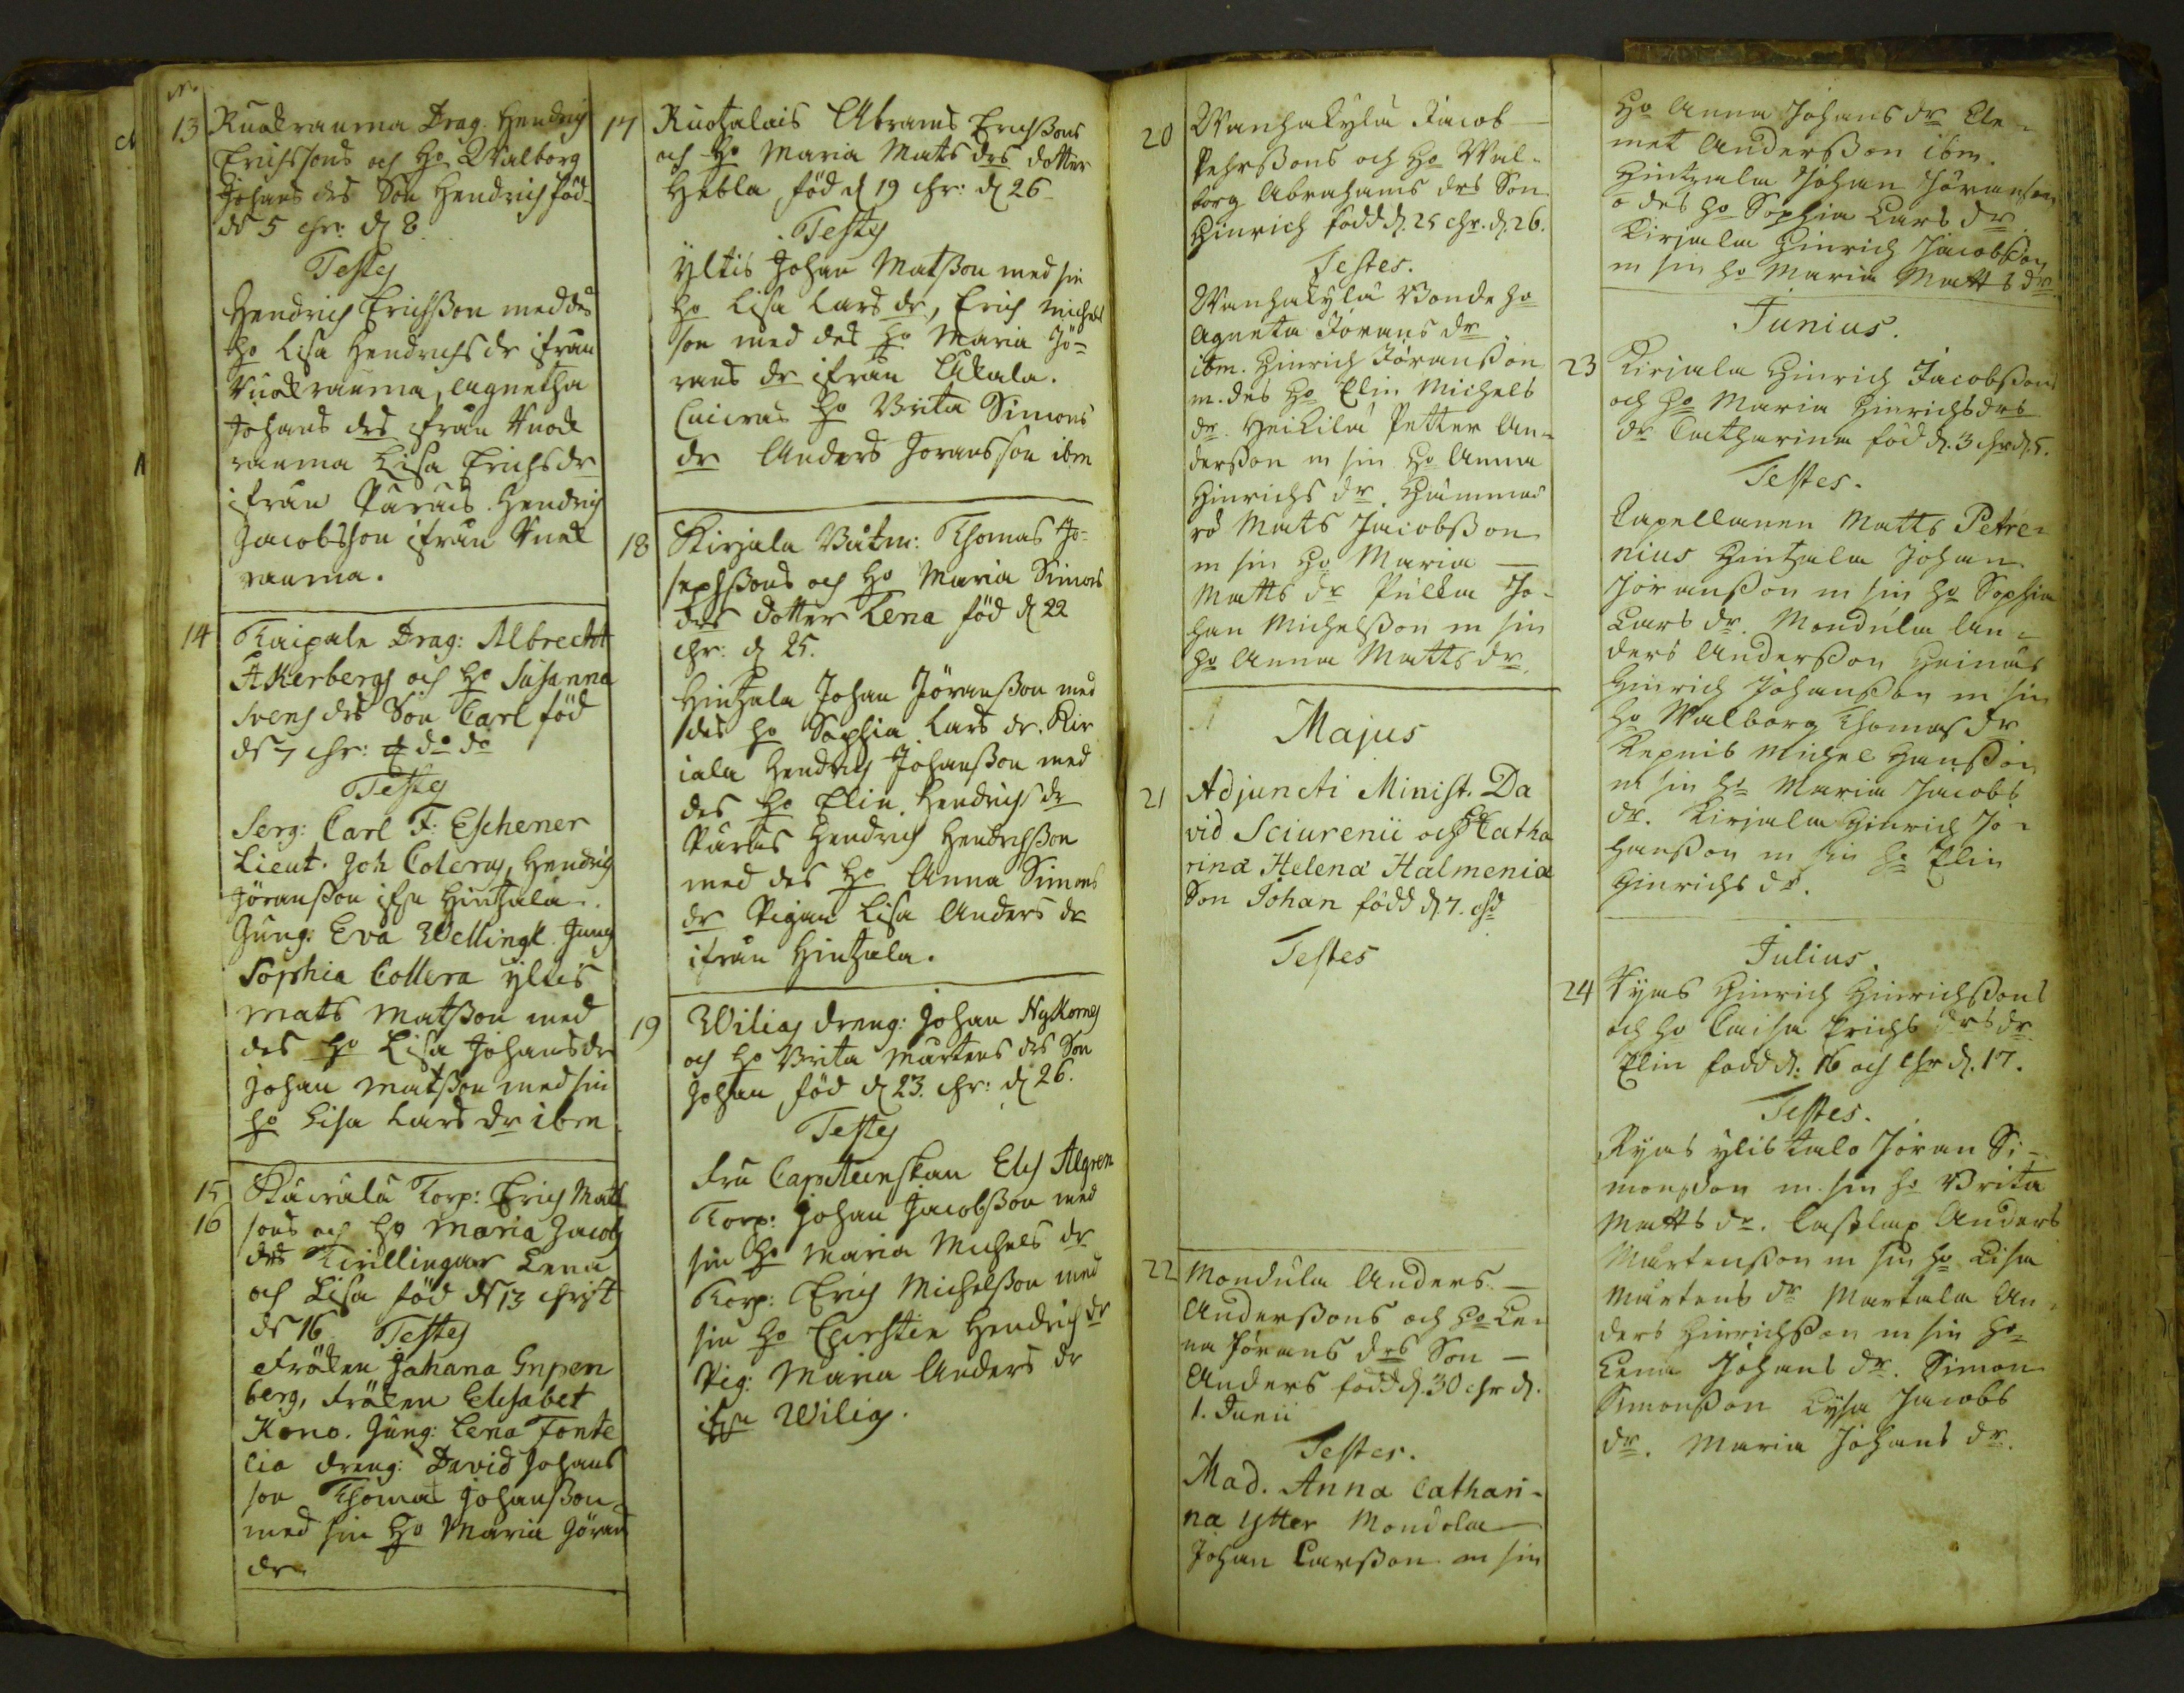 13 Ruokrauma Drag. Hendrich
Erichssons och Ho Walborg
Johans drs Son Hendrich föd
d 5 chr: d 8
Testes
Hendrich Erichsson med des
ho Lisa Hendrichs dr ifrån
Ruokrauma, Agnetha
Johans drs ifrån Ruok
rauma Lisa Erichs dr
ifrån Parais. Hendrich
Jacobsson ifrån Ruok
rauma.
14 Kaipala Drag: Albrecht
Åkerbergs och Ho Susanna
Svens drs Son Carl född
d 7 chr: d do do
Testes
Serg: Carl F: Eschener
Lieut. Joh Colerus, Hendrich
Jöransson ifn Hintzala.
Jung: Eva Wellingk Jung
Sophia Collera Yltis
Mats Matsson med
des ho Lisa Johans dr
Johan Matsson med sin
ho Lisa Lars dr ibm
15 Kauvala Corp: Erich Mats
16 sons och Ho Maria Jacobs
drs Tvillingar Lena
och Lisa föd d 13 christ
d 16. Testes
Fröken Johana Gripen
berg, Fröken Elisabet
Kono. Jung: Lena Fonte
lia dreng: David Johans
son Thomas Johansson
med sin Ho Maria Jöran
dr
17 Ruotzalais Abrams Erichssons
och Ho Maria Mats drs dotter
Hebla född d 19 chr: d 26
Testes
Yltis Johan Matsson med sin
ho Lisa Lars dr, Erich Michel
son med des Ho Maria Jö-
rans dr ifrån Ukala.
Ho Brita Simons
dr Anders Joransson ibm
18 Kirjala Båtm: Thomas Jo-
sephssons och Ho Maria Simons
drs dotter Lena föd d 22
chr: d 25.
Hintzala Johan Jöransson med
des ho Sophia Lars dr. Kir
iala Hendrich Johansson med
des Ho Elin Hendrichs dr
Paras Hendrich Hendrichsson
med des Ho Anna Simons
dr Pigan Lisa Anders dr
ifrån Hintzala.
19 Wilias dreng: Johan Nykornes
och Ho Brita Mårtens drs Son
Johan, föd d 23. chr: d 26.
Testes
Fru Capiteinskan Els Algren
Corp: Johan Jacobsson med
sin Ho Maria Michels dr
Corp: Erich Michelsson med
sin Ho Christin Hendrichs dr
Pig: Maria Anders dr
ifn Wilias.
20 Wanhakylä Jacob
Pehrssons och Ho Wal-
borg Abrahams drs Son
Hinrich född d. 25 chr. d. 26.
Testes.
Wanhakylä Bonde ho
Agneta Jörans dr
ibm. Hinrich Jöransson
m. des Ho Elin Michels
dr. Heikilä Petter An-
dersson m sin Ho Anna
Hinrichs dr. Hammar
rö Mats Jacobsson
m sin Ho Maria
Matts dr Pukka Jo-
han Michelsson m sin
Ho Anna Matts dr.
Majus
21 Adjuncti Minist. Da
vid Sciurenii och Catha
rinæ Helenæ Halmeniæ
Son Johan född d. 7. chr
Testes
22 Mondula Anders
Anderssons och Ho Le-
na Jörans drs Son
Anders född d. 30 chr d.
1. Junii
Testes.
Mad. Anna Cathari-
na Ytter Mondola
Johan Larsson m sin
Ho Anna Johans dr Cle-
met Andersson ibm.
Hintzala Johan Jöransson
o des Ho Sophia Lars dr
Kirjala Hinrich Jacobsson
m sin Ho Maria Matts dr
Junius.
23 Kirjala Hinrich Jacobssons
och Ho Maria Hinrichs drs
dr Catharina föd d. 3 chr d. 5.
Testes.
Capellanen Matts Petre-
nius Hintzala Johan
Jöransson m sin Ho Sophia
Lars dr. Mondula An-
ders Andersson Heinäs
Hinrich Johansson m sin
Ho Walborg Thomas dr
Kepnis Michel Hansson
m sin Ho Maria Jacobs
dr. Kirjala Hinrich Jo-
hansson m sin Ho Elin
Hinrichs dr.
Julius.
24 Ryas Hinrich Hinrichssons
och Ho Caisa Erichs drs dr
Elin född d. 16 och Chr d. 17.
Testes.
Ryas Ylis talo Jöran Si-
monsson m. sin Ho Brita
Matts dr. Anders
Mårtensson m sin Ho Lisa
Mårtens dr Martala An-
ders Hinrichsson m sin Ho
Lena Johans dr. Simon
Simonsson Lysa Jacobs
dr. Maria Johans dr.